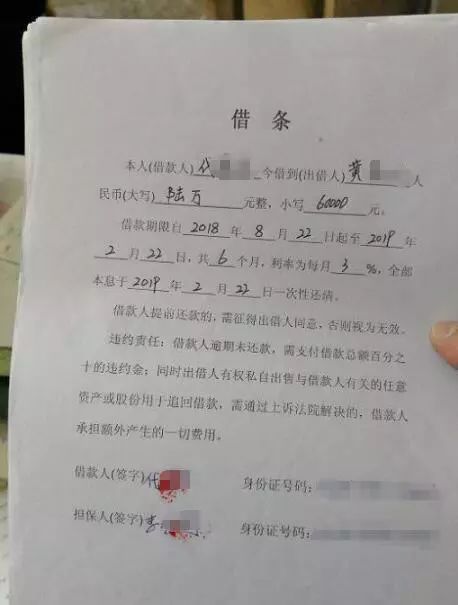 借条
本人(借款人)代 今借到(出借人)黄 人
民币(大写)陆万 元整，小写 60000 元。
借款期限自 2018 年 8 月 22 日起至 2019 年
2 月 22 日，共 6 个月，利率为每月 3 %，全部
本息于 2019 年 2 月 22 日一次性还清。
借款人提前还款的，需征得出借人同意，否则视为无效。
违约责任：借款人逾期未还款，需支付借款总额百分之
十的违约金；同时出借人有权私自出售与借款人有关的任意
资产或股份用于追回借款，需通过上诉法院解决的，借款人
承担额外产生的一切费用。
借款人(签字)代 身份证号码：
担保人(签字)李 身份证号码：